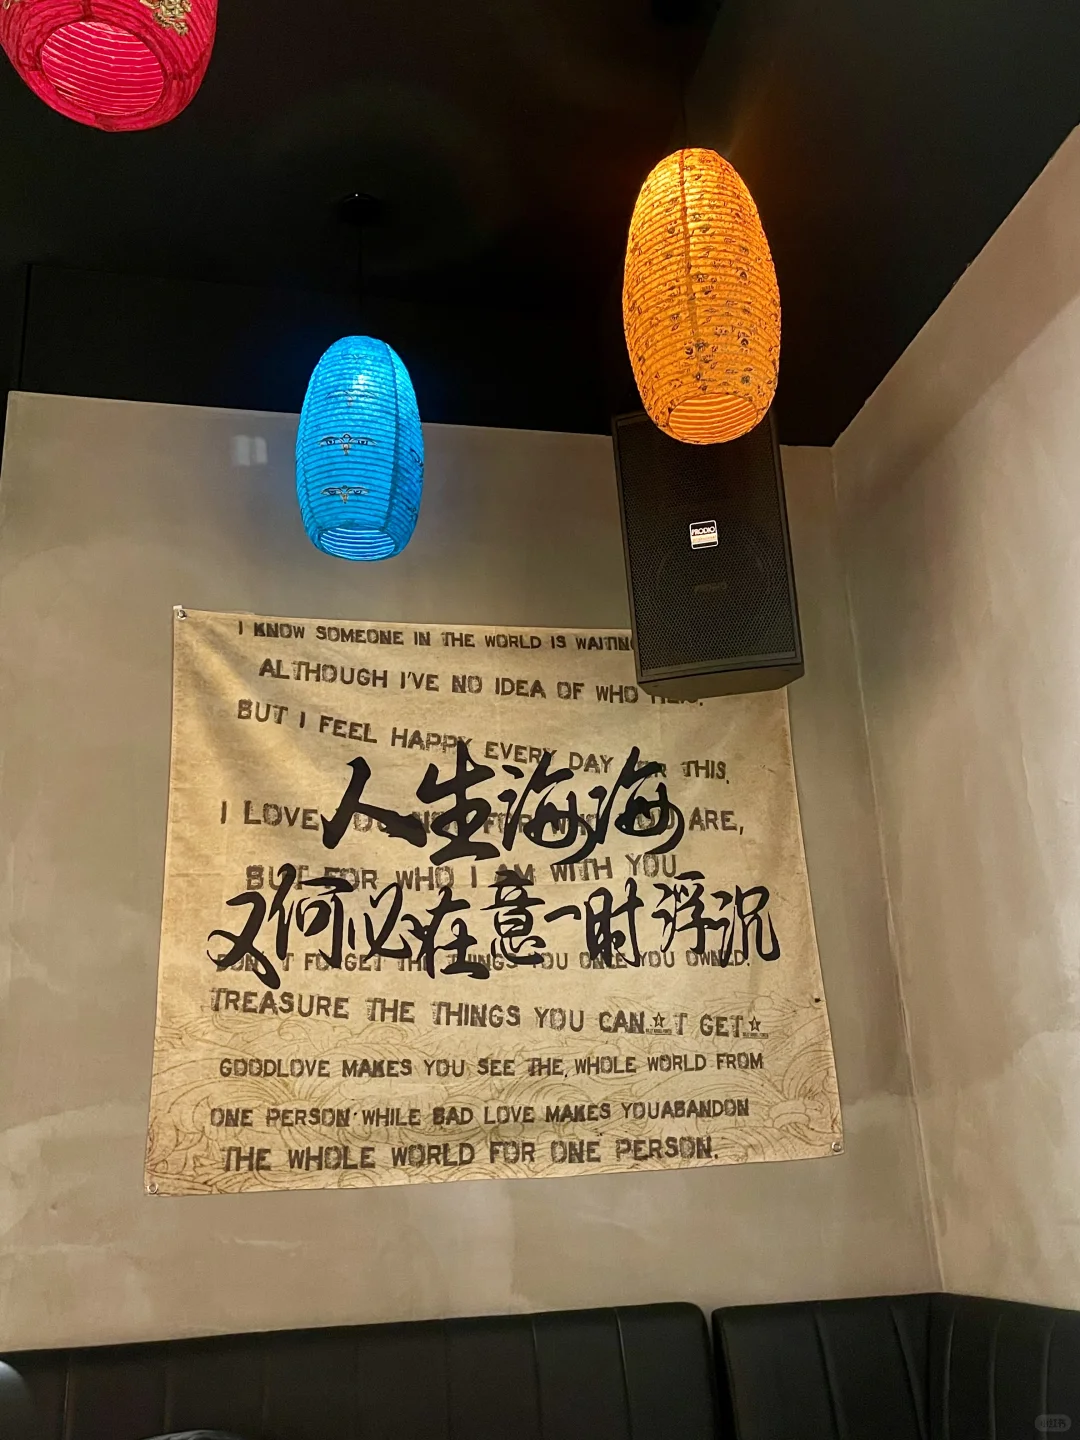 PRODIO
I KNOW SOMEONE IN THE WORLD IS WAITING
ALTHOUGH I'VE NO IDEA OF WHO HE IS.
BUT I FEEL HAPPY EVERY DAY FOR THIS,
人生海海
I LOVE YOU NOT FOR WHO YOU ARE,
BUT FOR WHO I AM WITH YOU
又何必在意一时浮沉
DON'T FORGET THE THINGS YOU ONCE YOU OWNED.
TREASURE THE THINGS YOU CAN☆T GET☆
GOODLOVE MAKES YOU SEE THE, WHOLE WORLD FROM
ONE PERSON'WHILE BAD LOVE MAKES YOUABANDON
THE WHOLE WORLD FOR ONE PERSON.
小红书